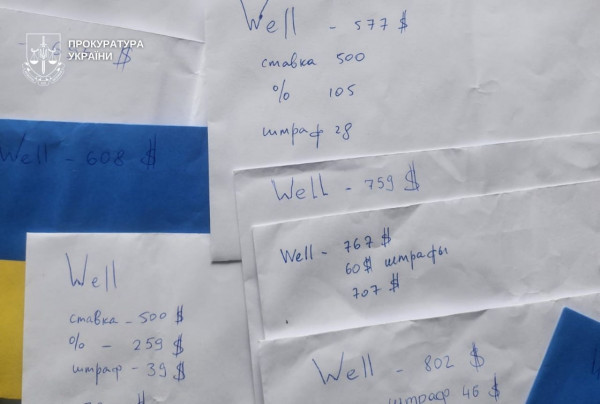 ПРОКУРАТУРА
УКРАЇНИ
$
Well - 577 $
ставка 500
% 105
штраф 28
Well - 608 $
Well - 759 $
Well - 767 $
60$ штрафы
707 $
Well
ставка - 500 $
% - 259 $
штраф - 39 $
$
Well - 802 $
штраф 46 $